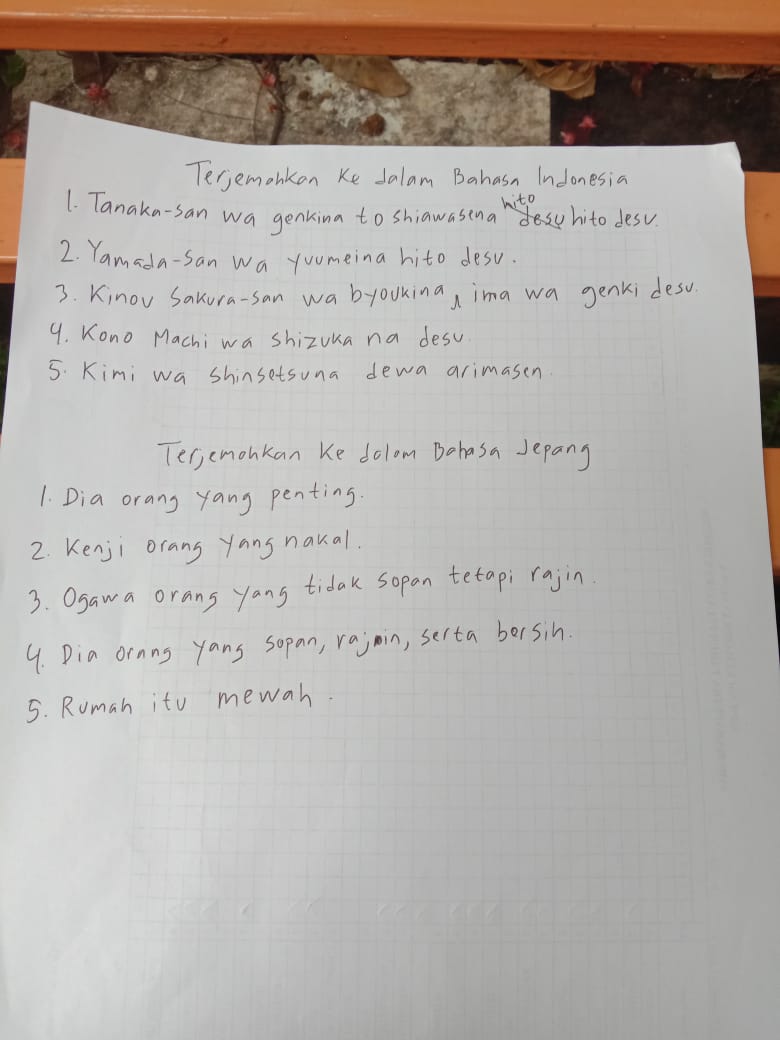 Terjemahkan Ke dalam Bahasa Indonesia
1. Tanaka-san wa genkina to shiawasena hito desu hito desu.
2. Yamada-san wa yuumeina hito desu.
3. Kinou Sakura-san wa byoukina, ima wa genki desu.
4. Kono Machi wa shizuka na desu.
5. Kimi wa shinsetsuna dewa arimasen.
Terjemahkan Ke dalam Bahasa Jepang
1. Dia orang yang penting.
2. Kenji orang yang nakal.
3. Ogawa orang yang tidak sopan tetapi rajin.
4. Dia orang yang sopan, rajin, serta bersih.
5. Rumah itu mewah.